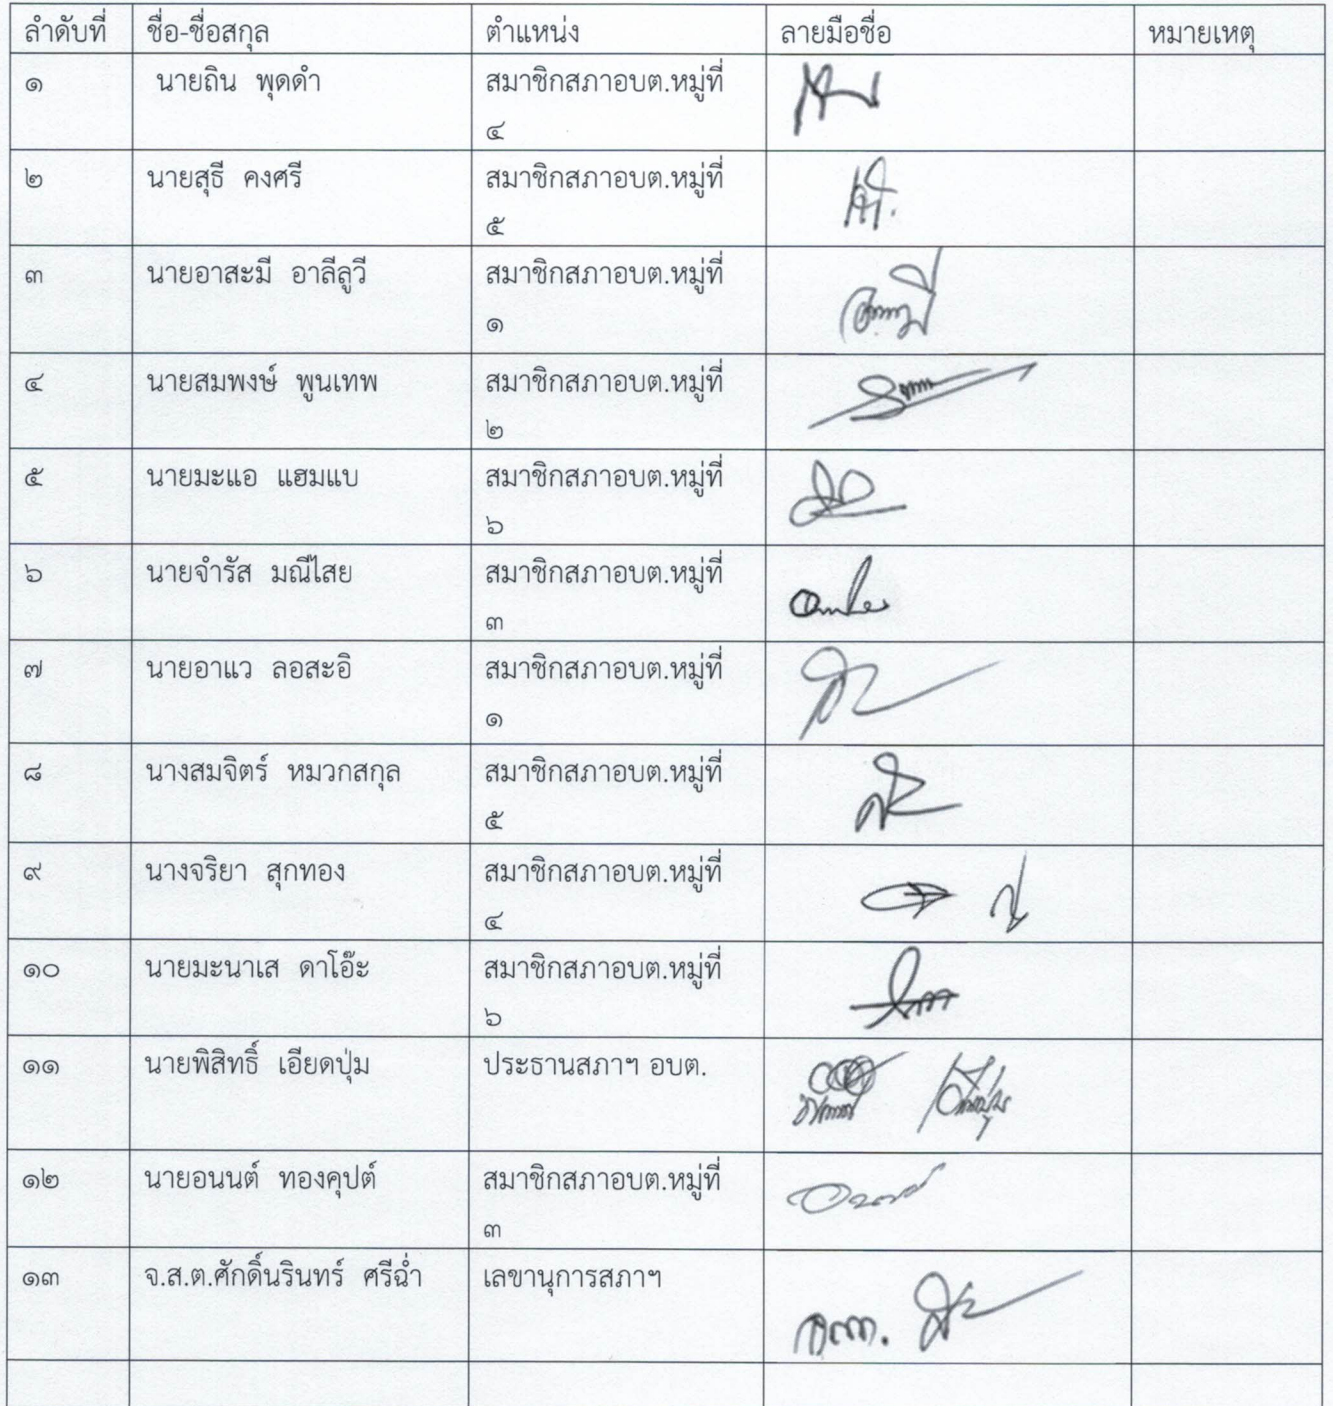 ลำดับที่ ชื่อ-ชื่อสกุล ตำแหน่ง ลายมือชื่อ หมายเหตุ
๑ นายถิน พุดดำ สมาชิกสภาอบต.หมู่ที่
๔
๒ นายสุธี คงศรี สมาชิกสภาอบต.หมู่ที่
๕
๓ นายอาสะมี อาลีลูวี สมาชิกสภาอบต.หมู่ที่
๑
๔ นายสมพงษ์ พูนเทพ สมาชิกสภาอบต.หมู่ที่
๒
๕ นายมะแอ แฮมแบ สมาชิกสภาอบต.หมู่ที่
๖
๖ นายจำรัส มณีไสย สมาชิกสภาอบต.หมู่ที่
๓
๗ นายอาแว ลอสะอิ สมาชิกสภาอบต.หมู่ที่
๑
๘ นางสมจิตร์ หมวกสกุล สมาชิกสภาอบต.หมู่ที่
๕
๙ นางจริยา สุกทอง สมาชิกสภาอบต.หมู่ที่
๔
๑๐ นายมะนาเส ดาโอ๊ะ สมาชิกสภาอบต.หมู่ที่
๖
๑๑ นายพิสิทธิ์ เอียดปุ่ม ประธานสภาฯ อบต.
๑๒ นายอนนต์ ทองคุปต์ สมาชิกสภาอบต.หมู่ที่
๓
๑๓ จ.ส.ต.ศักดิ์นรินทร์ ศรีฉ่ำ เลขานุการสภาฯ